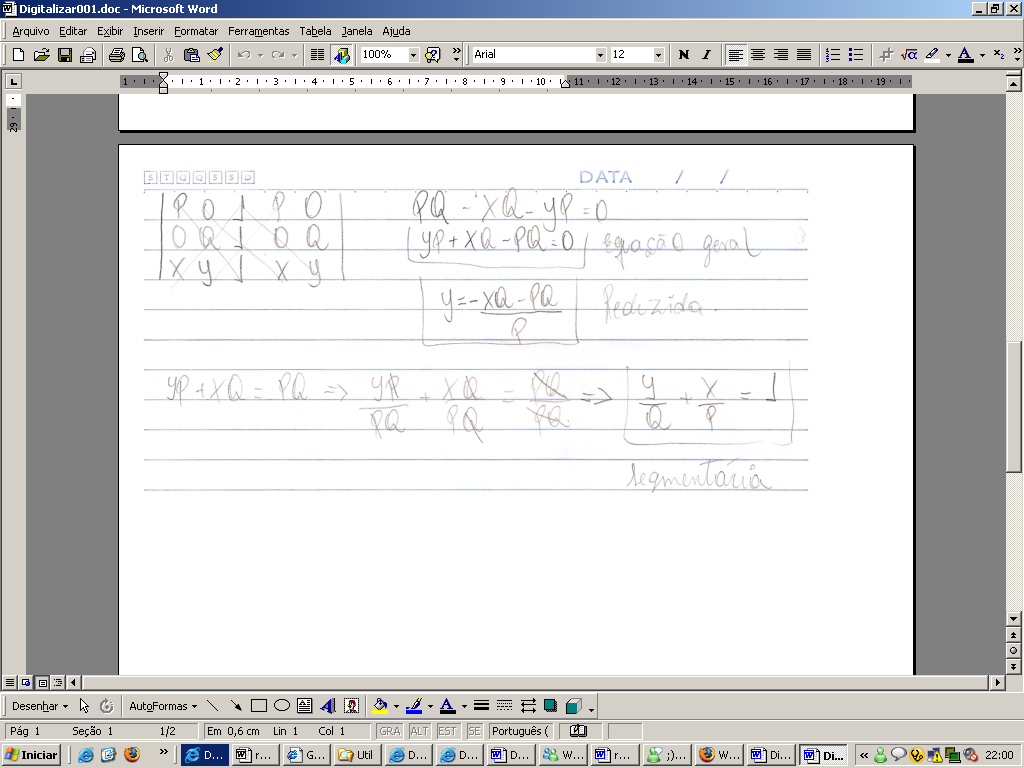 Digitalizar001.doc - Microsoft Word
Arquivo Editar Exibir Inserir Formatar Ferramentas Tabela Janela Ajuda
100% Arial 12 N I
1 1 2 3 4 5 6 7 8 9 10 11 12 13 14 15 16 17 18 19
29
S T Q Q S S D DATA / /
P 0 1 P 0
0 Q 1 0 Q
X Y 1 X Y
PQ - XQ - YP = 0
YP + XQ - PQ = 0 Equação geral
y = -XQ - PQ / P Reduzida.
YP + XQ = PQ => YP/PQ + XQ/PQ = PQ/PQ => Y/Q + X/P = 1
segmentária
Desenhar AutoFormas
Pág 1 Seção 1 1/2 Em 0,6 cm Lin 1 Col 1 GRA ALT EST SE Português (
Iniciar D... r... G... Util D... D... D... D... W... r... ;)... W... Di... Di... 22:00